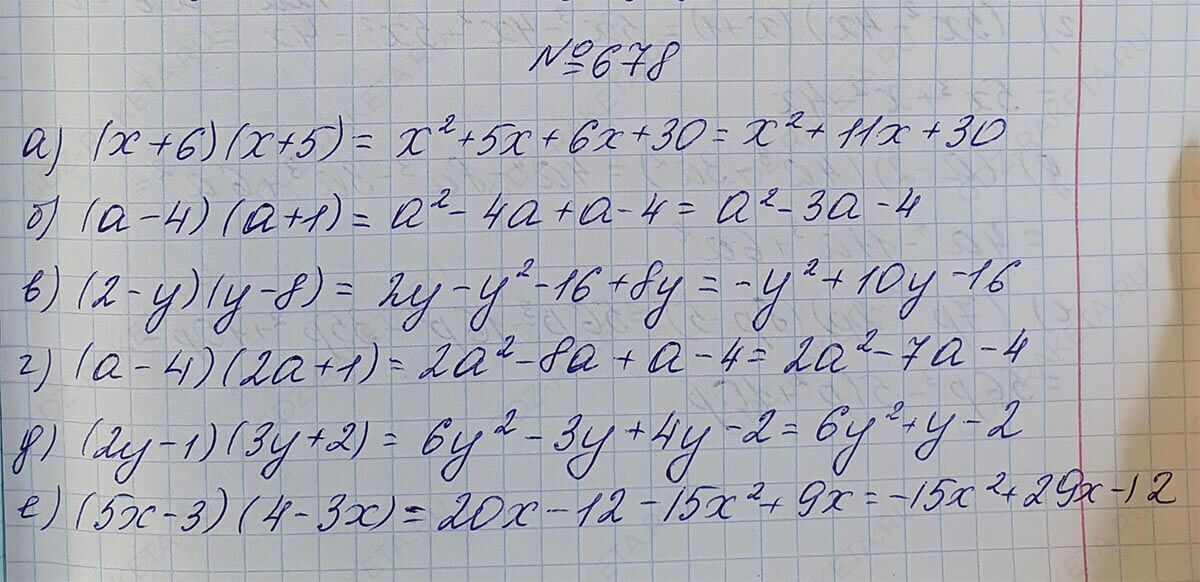 №678
а) (x+6)(x+5) = x²+5x+6x+30 = x²+11x+30
б) (a-4)(a+1) = a²-4a+a-4 = a²-3a-4
в) (2-y)(y-8) = 2y-y²-16+8y = -y²+10y-16
г) (a-4)(2a+1) = 2a²-8a+a-4 = 2a²-7a-4
д) (2y-1)(3y+2) = 6y²-3y+4y-2 = 6y²+y-2
е) (5x-3)(4-3x) = 20x-12-15x²+9x = -15x²+29x-12